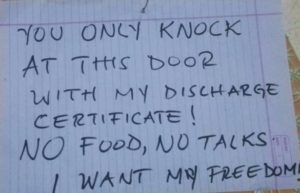 YOU ONLY KNOCK
AT THIS DOOR
WITH MY DISCHARGE
CERTIFICATE!
NO FOOD, NO TALKS
I WANT MY FREEDOM!